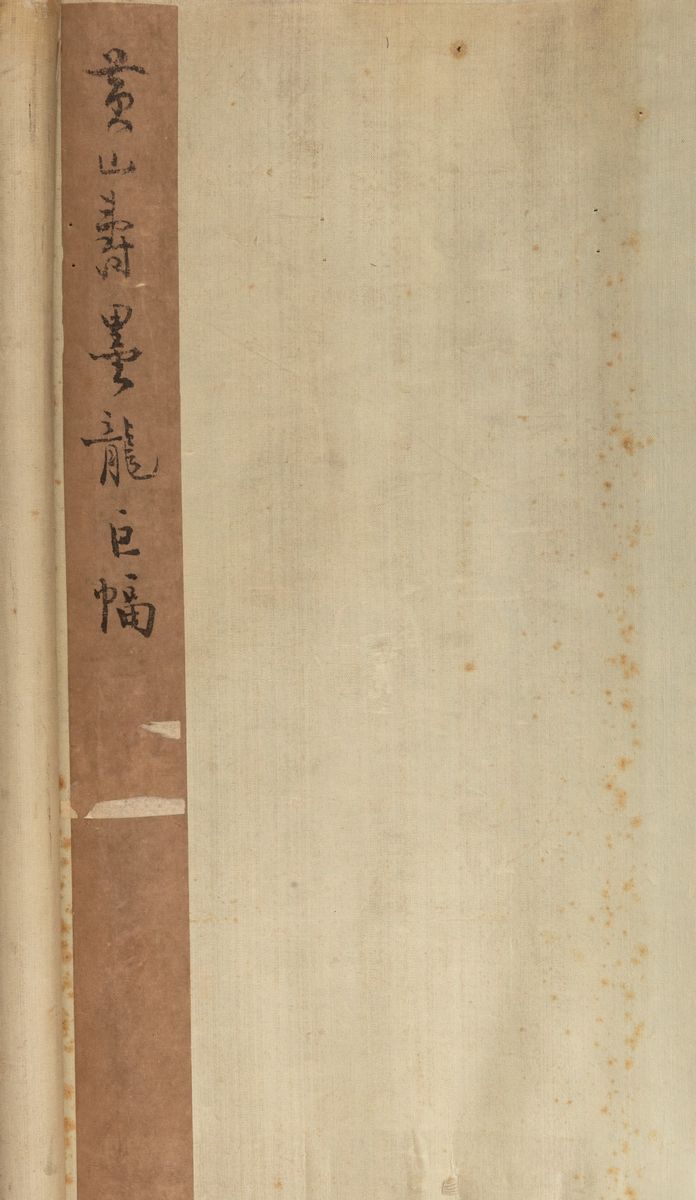 黃山壽墨龍巨幅